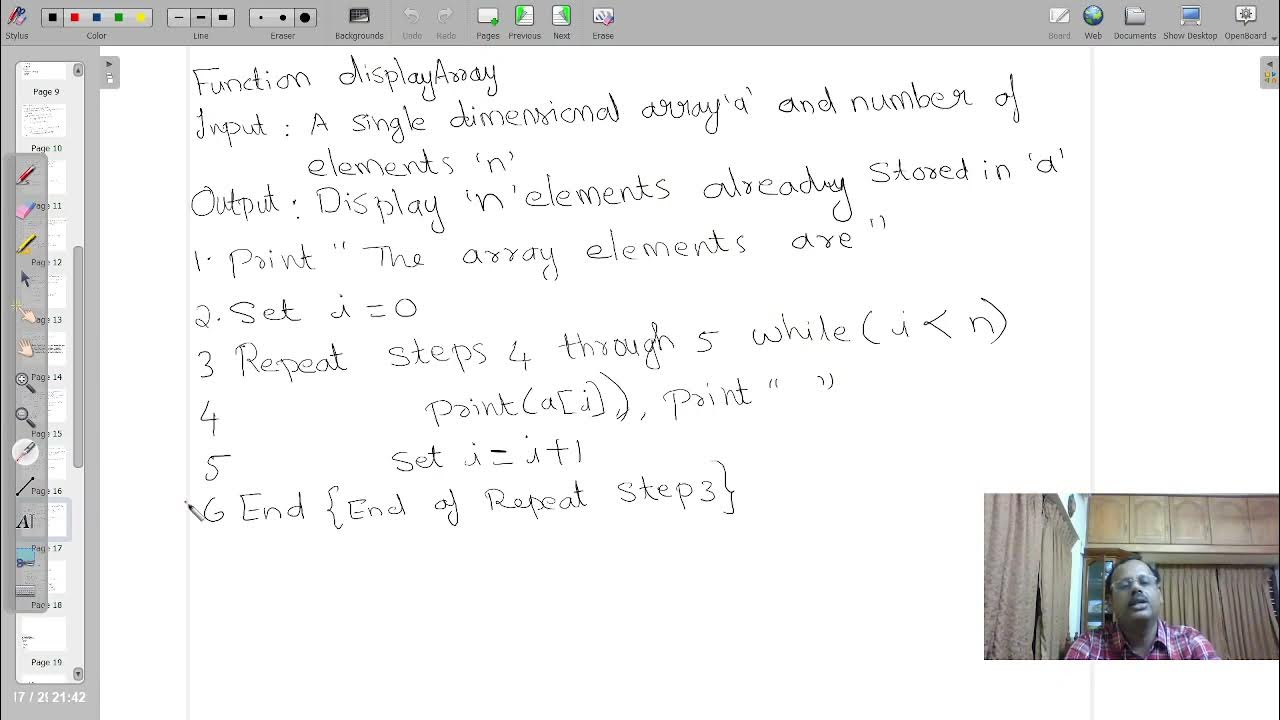 Stylus
Color
Line
Eraser
Backgrounds
Undo
Redo
Pages
Previous
Next
Erase
Board
Web
Documents
Show Desktop
OpenBoard
Page 9
Page 10
Page 11
Page 12
Page 13
Page 14
Page 15
Page 16
Page 17
Page 18
Page 19
17 / 29 21:42
Function displayArray
Input : A single dimensional array 'a' and number of
elements 'n'
Output : Display 'n' elements already stored in 'a'
1. Print " The array elements are "
2. Set i = 0
3 Repeat Steps 4 through 5 while ( i < n )
4 Print(a[i]), Print " "
5 Set i = i + 1
6 End {End of Repeat Step 3}